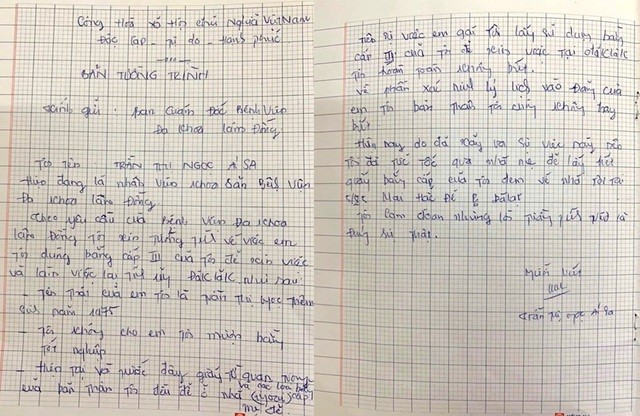 Cộng Hoà xã hội chủ nghĩa Việt Nam
Độc lập - tự do - hạnh phúc
BẢN TƯỜNG TRÌNH
Kính gửi : Ban Giám Đốc Bệnh Viện
Đa khoa Lâm Đồng
Tôi tên TRẦN THỊ NGỌC ÁI SA
Hiện đang là nhân viên khoa sản Bệnh Viện
Đa khoa Lâm Đồng
Theo yêu cầu của Bệnh Viện Đa khoa
Lâm Đồng tôi xin tường trình về việc em
tôi dùng bằng cấp III của tôi để xin việc
và làm việc tại tỉnh ủy ĐăkLăk như sau:
- Tên thật của em tôi là Trần Thị Ngọc Thêm
Sinh năm 1975
- Tôi không cho em tôi mượn bằng
tốt nghiệp
- Hiện tại và trước đây giấy tờ quan trọng
và các loại
của bản thân tôi đều để ở nhà
mẹ đẻ
sự việc em gái tôi lấy sử dụng bằng
cấp III của tôi để xin việc tại ĐăkLăk
tôi hoàn toàn không biết.
về phần xác minh lý lịch vào Đảng của
em tôi bản thân tôi cũng không hay
biết
Hiện nay do đã xảy ra sự việc này nên
tôi đã tức tốc qua nhà mẹ để lấy hết
giấy bằng cấp của tôi đem về nhà tôi tại
Mai Hắc Đế Đàlạt
Tôi cam đoan những lời tường trình trên là
đúng sự thật.
Người viết
Trần Thị Ngọc Ái Sa